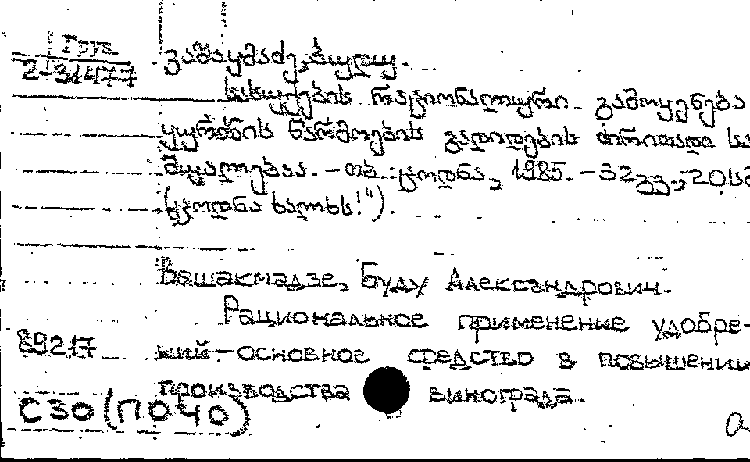 Груз
2-31477
ვაშაყმაძე, ბუდუ.
სასუქების რაციონალური გამოყენება
ყურძნის წარმოების გადიდების ძირითადი სა
შუალებაა. – თბ. : ცოდნა, 1985. – 32 გვ.; 20 სმ
(ცოდნა ხალხს!").
Вашакмадзе, Буду Александрович.
Рациональное применение удобре-
89217 ний – основное средство в повышении
производства винограда.
С30(П040)
а